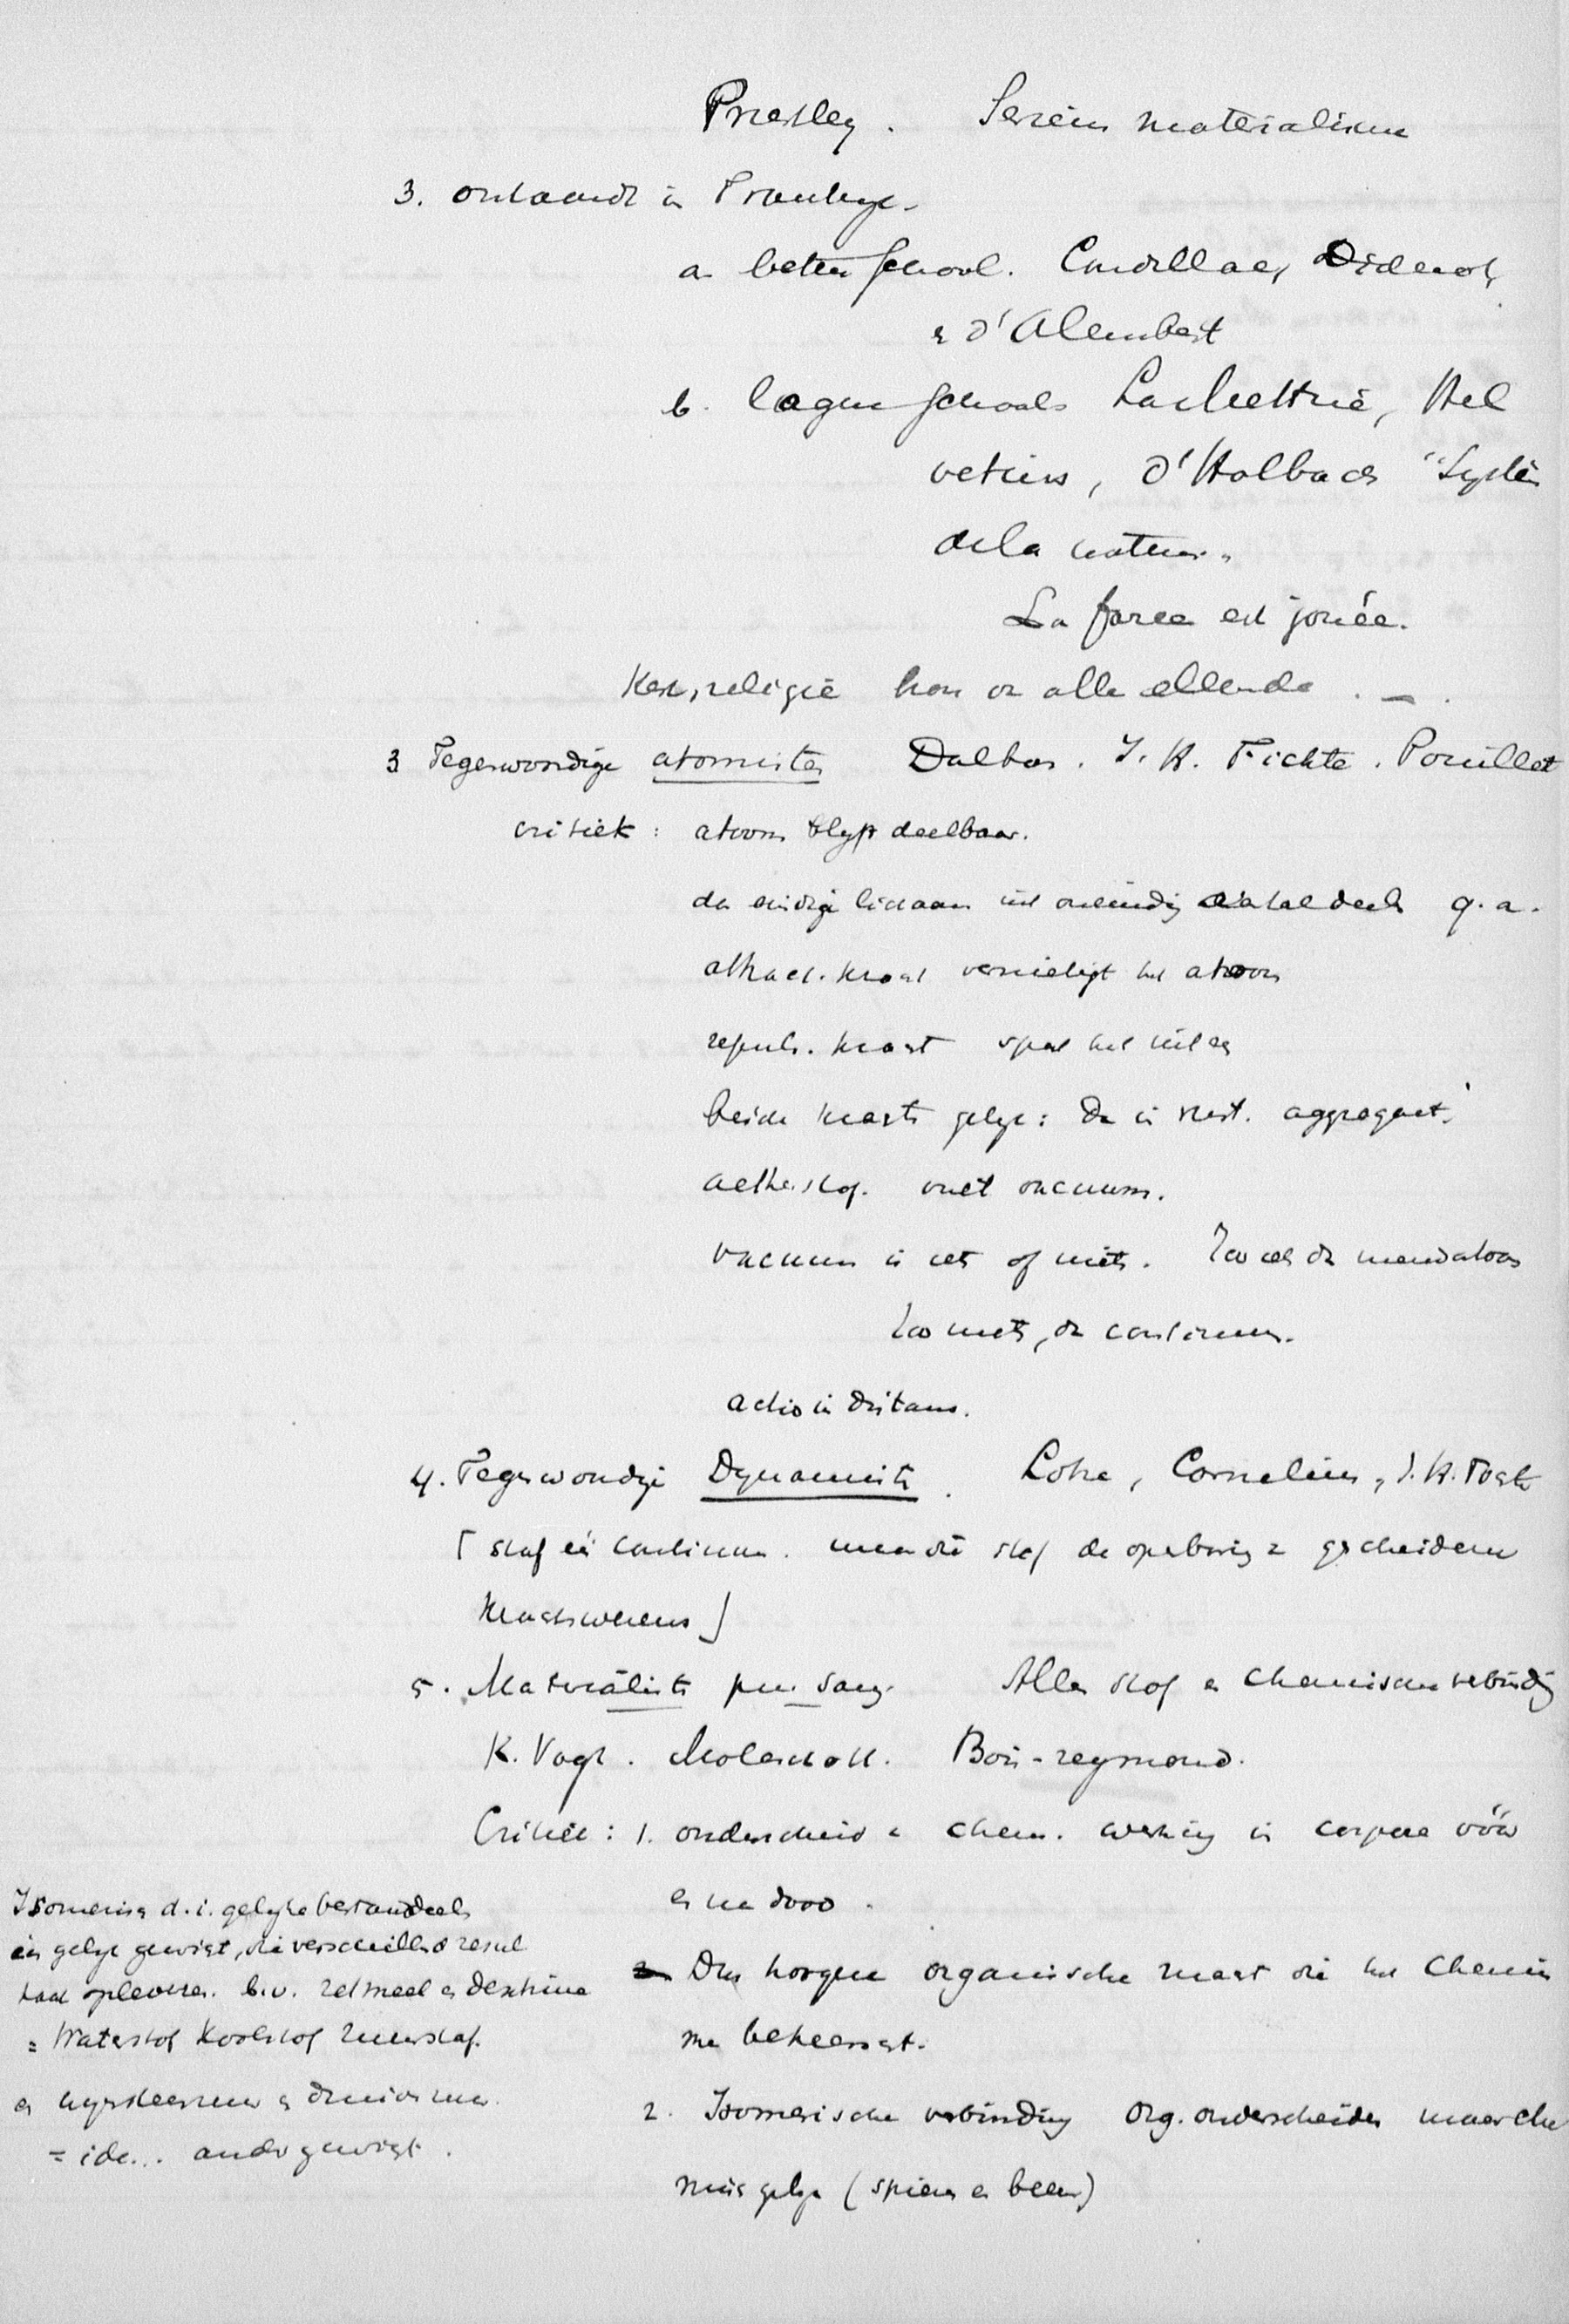 Priestley. Serieus materialisme
3. ontaardt in Frankryk.
a betere school. Condillac, Diderot,
& d'Alembert
b. lagere school La Mettrie, Hel
vetius, d'Holbach "Systèm
de la nature"
La farce est jouée.
Kerk, religie bron v alle ellende. —
3 Tegenwoordige atomisten Dalton. I. H. Fichte. Pouillet
critiek: atoom blyft deelbaar.
de eindig lichaam uit oneindig aantal deelen q. a.
attract. kracht vernietigt het atoom
repuls. kracht spat het uit een
beide krachten gelyk: dan is rest. aggregaat.
aetherstof. vult vacuum.
vacuum is iets of niets. Zoo iets dan
Zoo niets, dan continuum.
actio in distans.
4. Tegenwoordige Dynamisten. Lotze, Cornelius, I. H. Ficht
[stof één continuum. maar die stof de openbaring v gescheidene
krachtwezens]
5. Materialisten pur sang. Alles stof en chemische verbinding
K. Vogt. Moleschott. Bois-reymond.
Critiek: 1. onderscheid v chem. werking in corpore vóór
en na dood.
Dus hoogere organische kracht die het chemis
me beheerscht.
2. Isomerische verbinding org. onderscheiden maar che
misch gelyk (spieren en been)
Isomerisme d.i. gelyke bestanddeelen
in gelyk gewigt, die verschillend resul
taat opleveren. b.v. zetmeel en dextrine
= Waterstof Koolstof Zuurstof.
en en druivensuiker
= ide... ander gewigt.